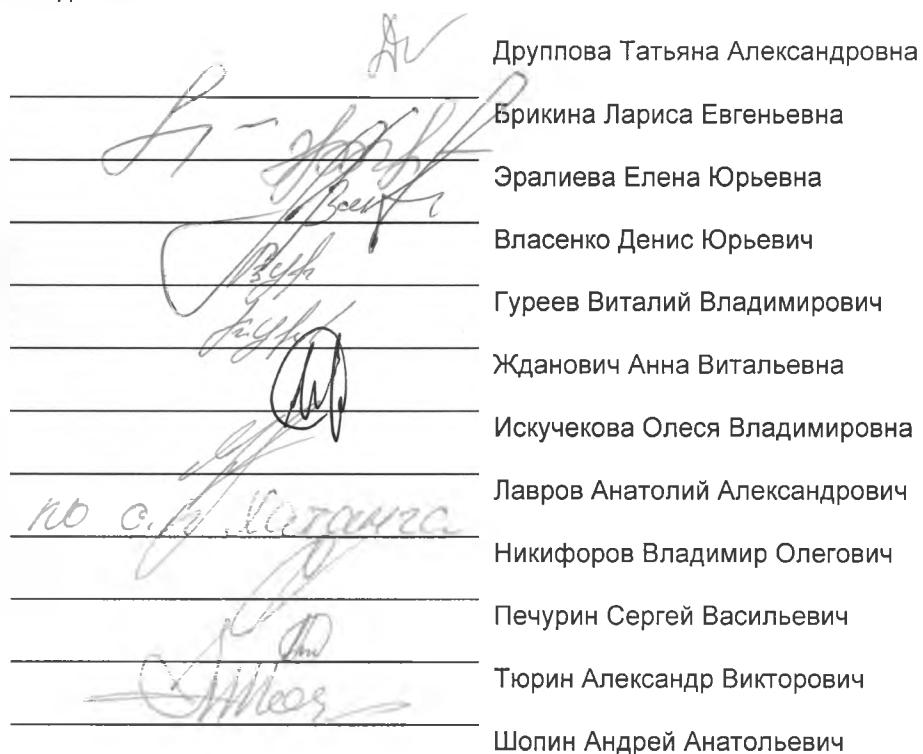 Друппова Татьяна Александровна
Брикина Лариса Евгеньевна
Эралиева Елена Юрьевна
Власенко Денис Юрьевич
Гуреев Виталий Владимирович
Жданович Анна Витальевна
Искучекова Олеся Владимировна
Лавров Анатолий Александрович
по с.п. Хатанга
Никифоров Владимир Олегович
Печурин Сергей Васильевич
Тюрин Александр Викторович
Шопин Андрей Анатольевич